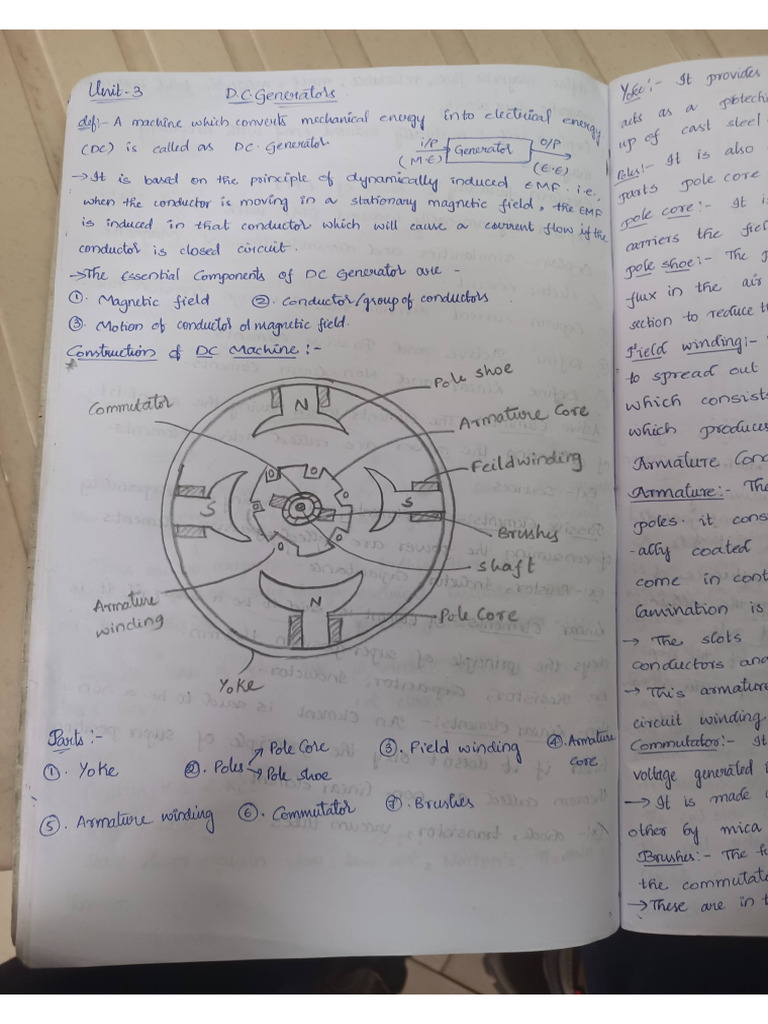 Unit-3 D.C Generators
def:- A machine which converts mechanical energy into electrical energy
(DC) is called as DC Generator
i/P (M.E) Generator O/P (E.E)
→ It is based on the principle of dynamically induced EMF. i.e.,
when the conductor is moving in a stationary magnetic field, the EMF
is induced in that conductor which will cause a current flow if the
conductor is closed circuit.
→ The essential Components of DC Generator are -
①. Magnetic field ②. Conductor/group of conductors
③. Motion of conductor of magnetic field.
Construction of DC Machine:-
Pole shoe
Commutator
N
Armature Core
Feild winding
S
S
Brushes
shaft
N
Armature
winding
Pole Core
Yoke
Parts:-
①. Yoke ②. Poles → Pole Core → Pole shoe ③. Field winding ④. Armature
core
⑤. Armature winding ⑥. Commutator ⑦. Brushes
Yoke:- It provides
acts as a
up of cast steel
Poles:- It is also
parts pole core
pole core:- It is
carriers the
pole shoe:- The
flux in the air
section to reduce
Field winding:-
to spread out
which consists
which produces
Armature
Armature:- The
poles. it
-ally coated
come in
lamination is
→ The slots
conductors
→ This armature
circuit winding
Commutator:- It
voltage generated
→ It is made
other by mica
Brushes:- The
the
→ These are in